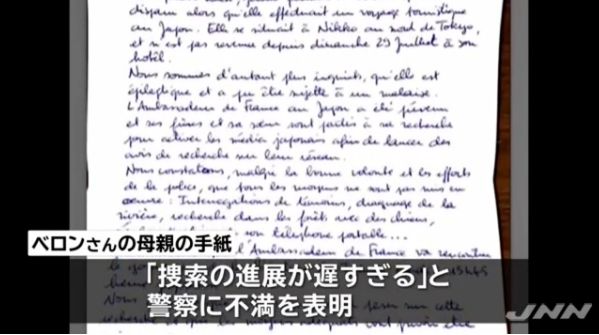 disparu alors qu'elle effectuait un voyage touristique
au Japon. Elle se situait à Nikko au nord de Tokyo,
et n'est pas revenue depuis dimanche 29 Juillet à son
hôtel.
Nous sommes d'autant plus inquiets, qu'elle est
épileptique et a pu être sujette à un malaise.
L'Ambassadeur de France au Japon a été prévenu
et ses frères et sa sœur sont partis à sa recherche
pour activer les média japonais afin de lancer des
avis de recherche sur leur réseau.
Nous constatons, malgré la bonne volonté et les efforts
de la police, que tous les moyens ne sont pas mis en
œuvre : Interrogations de témoins, dragage de la
rivière, recherche dans les forêts avec des chiens,
son téléphone portable...
l'Ambassadeur de France va rencontrer
ベロンさんの母親の手紙
「捜索の進展が遅すぎる」と
警察に不満を表明
JNN